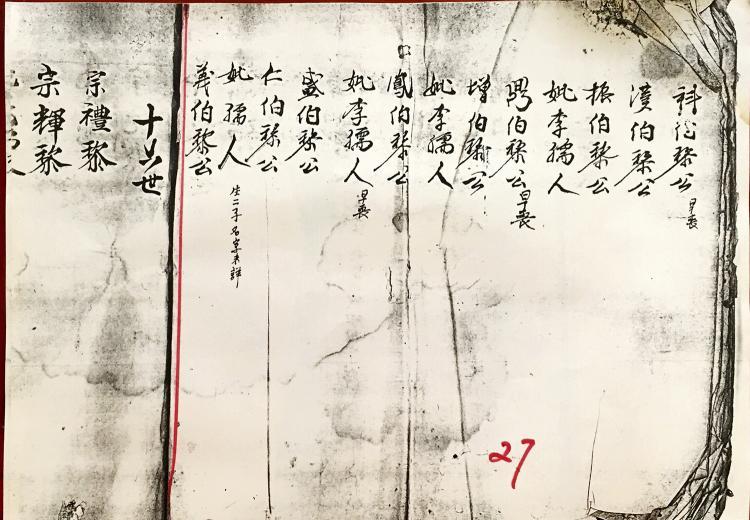 科伯黎公 早喪
漢伯黎公
振伯黎公
妣李孺人
伯黎公 早喪
增伯黎公
妣李孺人
鳳伯黎公
妣李孺人 早喪
盛伯黎公
仁伯黎公
妣孺人 生二子名字未詳
義伯黎公
十六世
宗禮黎
宗輝黎
27